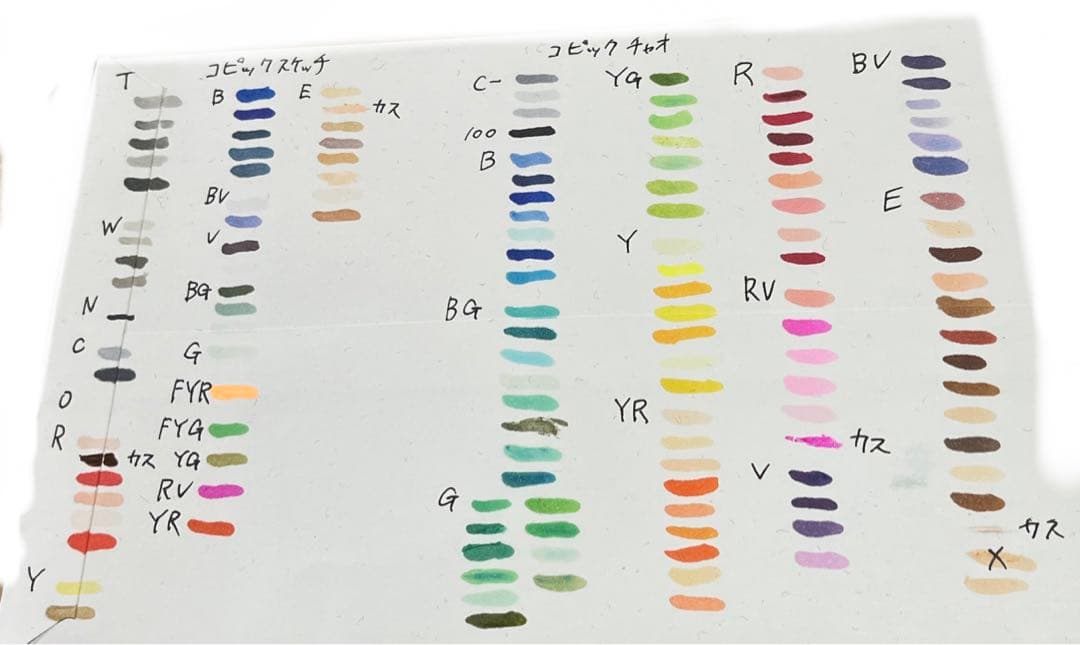 コピックスケッチ
T
W
N
C
O
R
カス
Y
B
BV
V
BG
G
FYR
FYG
YG
RV
YR
E
カス
コピックチャオ
C-
100
B
BG
G
YG
Y
YR
R
RV
カス
V
BV
E
カス
X